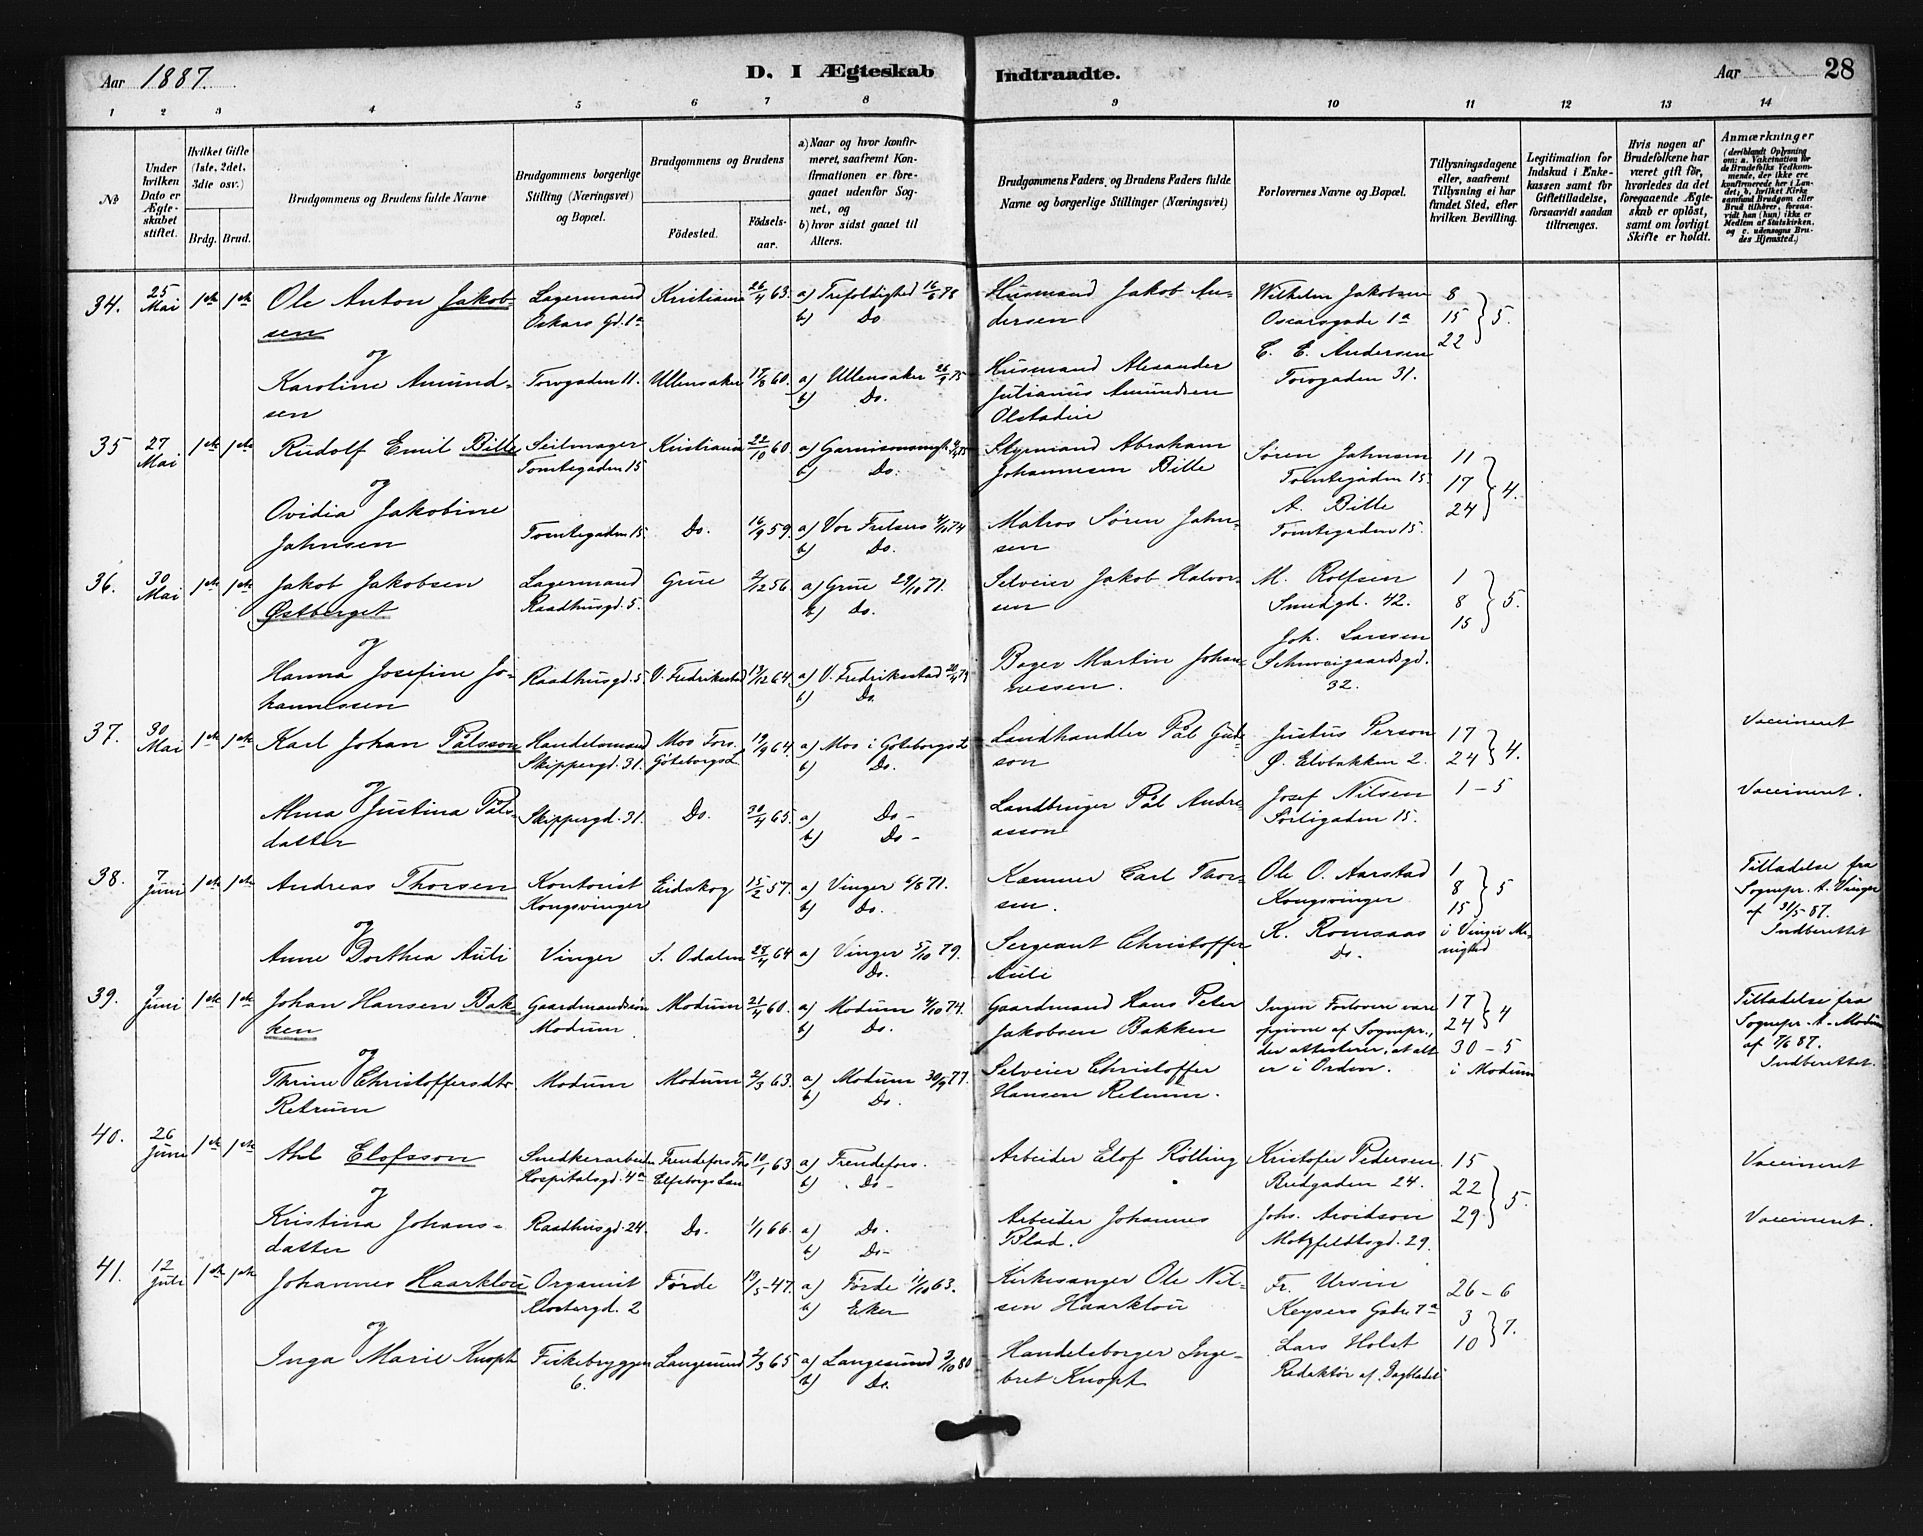 Aar 1887.
D. I Ægteskab Indtraadte.
Aar 28
1 2 3 4 5 6 7 8 9 10 11 12 13 14
No
Under hvilken Dato er Ægteskabet stiftet.
Hvilket Gifte (1ste, 2det, 3die osv.)
Brdg. Brud.
Brudgommens og Brudens fulde Navne
Brudgommens borgerlige Stilling (Næringsvei) og Bopæl.
Brudgommens og Brudens
Födested. Födselsaar.
a) Naar og hvor konfirmeret, saafremt Konfirmationen er foregaaet udenför Sognet, og
b) hvor sidst gaaet til Alters.
Brudgommens Faders og Brudens Faders fulde Navne og borgerlige Stillinger (Næringsvei)
Forlovernes Navne og Bopæl.
Tillysningsdagene eller, saafremt Tillysning ei har fundet Sted, efter hvilken Bevilling.
Legitimation for Indskud i Enkekassen samt for Giftetilladelse, forsaavidt saadan tiltrænges.
Hvis nogen af Brudefolkene har været gift för, hvorledes da det foregaaende Ægteskab er oplöst, samt om lovligt Skifte er holdt.
Anmærkninger
(deriblandt Oplysning om: a. Vakcination for de Brudefolks Vedkommende, der ikke ere konfirmerede her i Landet, b. hvilket Kirkesamfund Brudgom eller Brud tilhörer, forsaavidt han (hun) ikke er Medlem af Statskirken, og c. udensogns Brudes Hjemsted.)
34. 25 Mai 1ste 1ste Ole Anton Jakobsen Lagermand Oskars Gd. 1a Kristiania 26/4 63. a) Trefoldighed 16/6 78 b) Do. Husmand Jakob Andersen Wilhelm Jakobsen Oscarsgade 1a 8 15 22 } 5.
og
Karoline Amundsen Torvgaden 11. Ullensaker 17/8 60. a) Ullensaker 26/9 75 b) Do. Husmand Alexander Julianus Amundsen C. E. Andersen Torvgaden 31.
35 27 Mai 1ste 1ste Rudolf Emil Bille Seilmager Tomtegaden 15 Kristiania 22/10 60. a) b) Do. Styrmand Abraham Johannesen Bille Søren Jahnsen Tomtegaden 15. 11 17 24 } 4.
og
Ovidia Jakobine Jahnsen Tomtegaden 15. Do. 16/9 59. a) Vor Frelsers 4/10 74 b) Do. Matros Søren Jahnsen A. Bille Tomtegaden 15.
36. 30 Mai 1ste 1ste Jakob Jakobsen Østberget Lagermand Raadhusgd. 5. Grue 2/12 56. a) Grue 29/10 71. b) Do. Selveier Jakob Halvorsen M. Rolfsen Smedgd. 42. 1 8 15 } 5.
og
Hanna Josefine Johannessen Raadhusgd. 5 V. Fredrikstad 13/12 64 a) V. Fredrikstad b) Do. Bager Martin Johannessen. Joh. Larsson Schweigaardsgd. 32.
37. 30 Mai 1ste 1ste Karl Johan Pålsson Handelsmand Skippergd. 31. Mos Fors. Göteborgs L. 19/9 64. a) Mos i Göteborgs L b) Do. Landhandler Pål Gudson Justus Person Ø. Elvbakken 2. 17 24 } 4. Vaccineret
og
Alma Justina Pålsdatter Skippergd. 31. Do. 30/4 65. a) Do- b) Do- Landbruger Pål Andreasson Josef Nilsen 1-5 Vaccineret.
38. 7 Juni 1ste 1ste Andreas Thorsen Kontorist Kongsvinger Eidskog 15/2 57. a) Vinger 6/8 71. b) Do. Kæmner Carl Thorsen. Ole O. Aarstad Kongsvinger 1 8 15 } 5 i Vinger Menighed Tilladelse fra Sognepr. t. Vinger af 31/5-87. Indberettet
og
Anne Dorthea Auli Vinger S. Odalen 24/4 64 a) Vinger 5/10 79. Do. Sergeant Christoffer Auli K. Romsaas Do.
39. 9 Juni 1ste 1ste Johan Hansen Bakken Gaardmandssøn Modum Modum 21/4 60. a) Modum 4/10 74. b) Do. Gaardmand Hans Peter Jakobsen Bakken Ingen Forlovere vare opgivne af Sognepr., der attesterer, at alt er i Orden. 17 24 } 4 30-5 i Modum Tilladelse fra Sognepr. t. Modum af 7/6 87. Indberettet.
og
Thrine Christoffersdtr. Retrum Modum Modum 2/3 63. a) Modum 30/9 77. b) Do. Selveier Christoffer Hansen Retrum.
40. 26 Juni 1ste 1ste Elofsson Snedkerarbeider Hospitalsgd. 4a Frendefors Fors Elfsborgs Län 10/1 63 a) Frendefors. b) Do- Arbeider Elof Rölling Kristofer Pedersen Bredgaden 24. 15 22 29 } 5. Vaccineret
og
Kristina Johansdatter Raadhusgd. 24. Do. 1/1 66. a) Do. b) Do- Arbeider Johannes Blad. Johs. Arvidson Motzfeldtsgd. 29. Vaccineret.
41. 12 Juli 1ste 1ste Johannes Haarklou Organist Clostergd. 2 Førde 13/5-47. a) Førde 11/10 63. b) Eker Kirkesanger Ole Nilsen Haarklou Fr. Ursin Keysers Gade 7a 26-6 3 10 } 7.
og
Inga Marie Knoph Fiskebryggen 6. Langesund 2/3 65 a) Langesund 3/10 80 b) Do. Handelsborger Ingebret Knoph Lars Holst Redaktør af Dagbladet